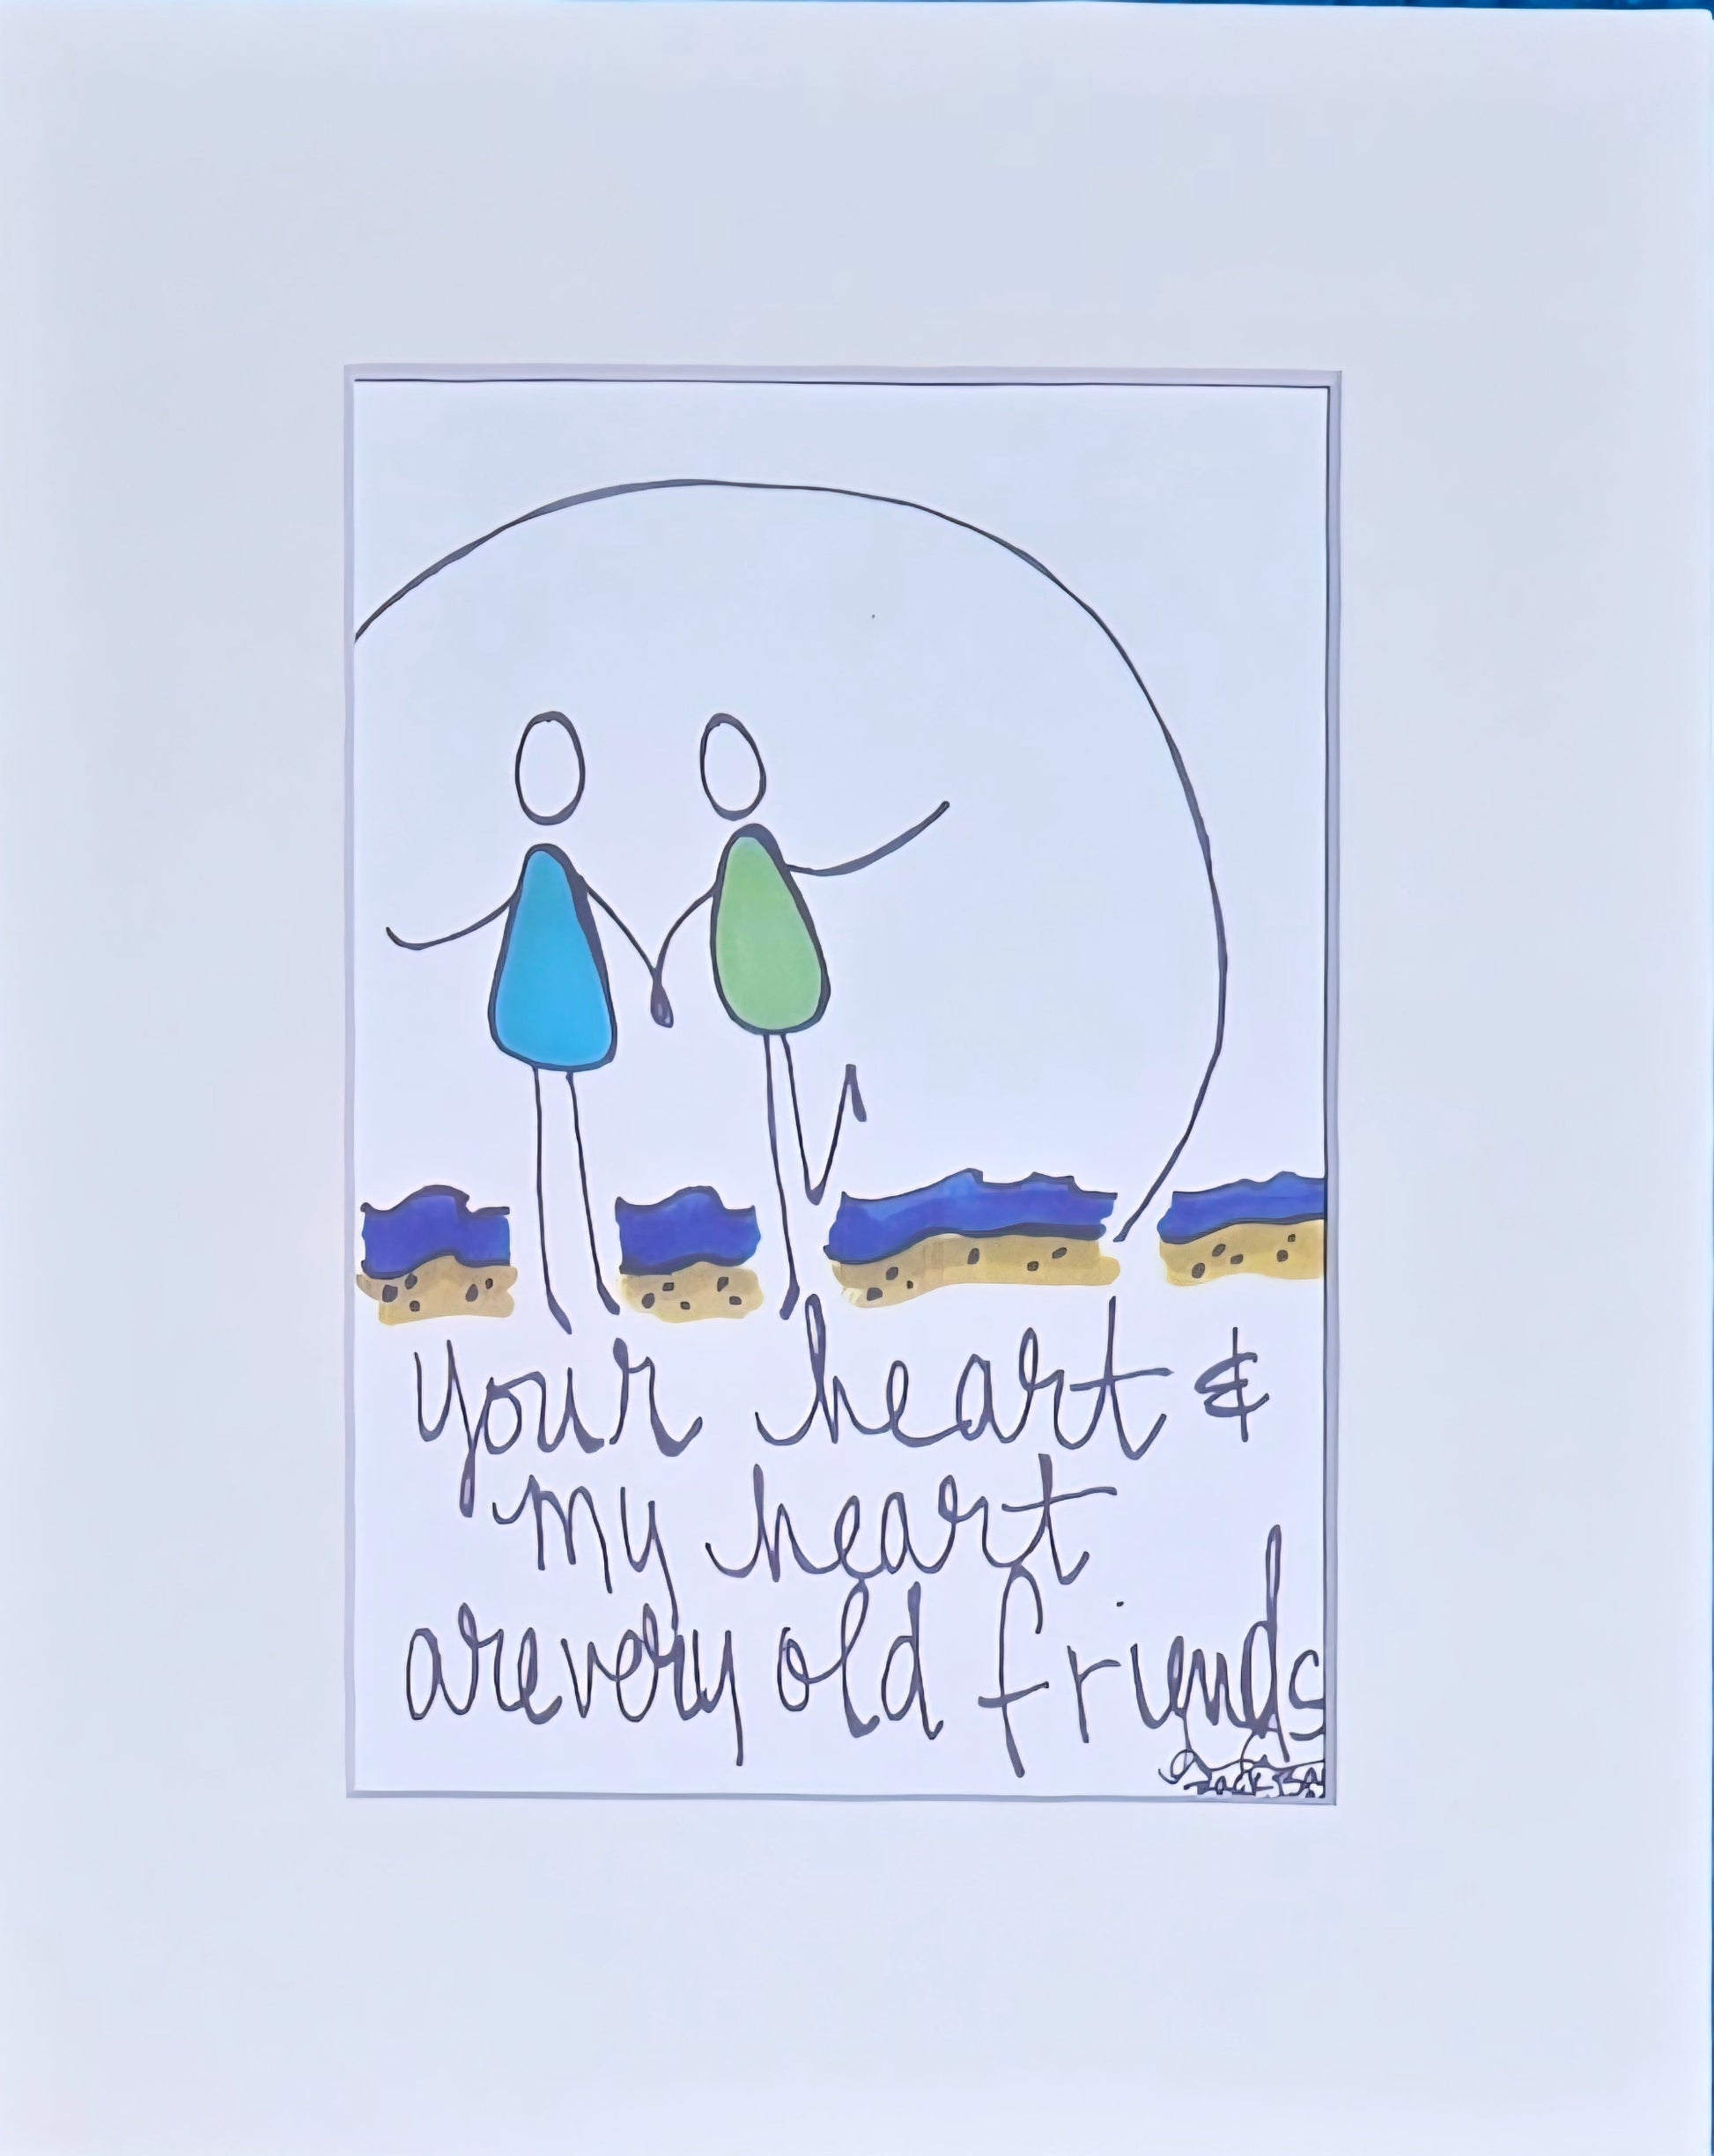 your heart &
my heart
are very old friends